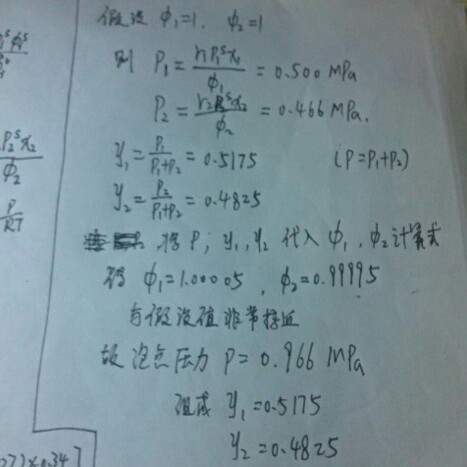 假设 φ₁=1. φ₂=1
则 P₁ = r₁P₁ˢx₁/φ₁ = 0.500 MPa
P₂ = r₂P₂ˢx₂/φ₂ = 0.466 MPa.
y₁ = P₁/(P₁+P₂) = 0.5175 (P=P₁+P₂)
y₂ = P₂/(P₁+P₂) = 0.4825
将 P, y₁, y₂ 代入 φ₁, φ₂ 计算式
得 φ₁=1.00005, φ₂=0.99995
与假设值非常接近
故泡点压力 P=0.966 MPa
组成 y₁=0.5175
y₂=0.4825
P₂ˢx₂/φ₂
P/RT